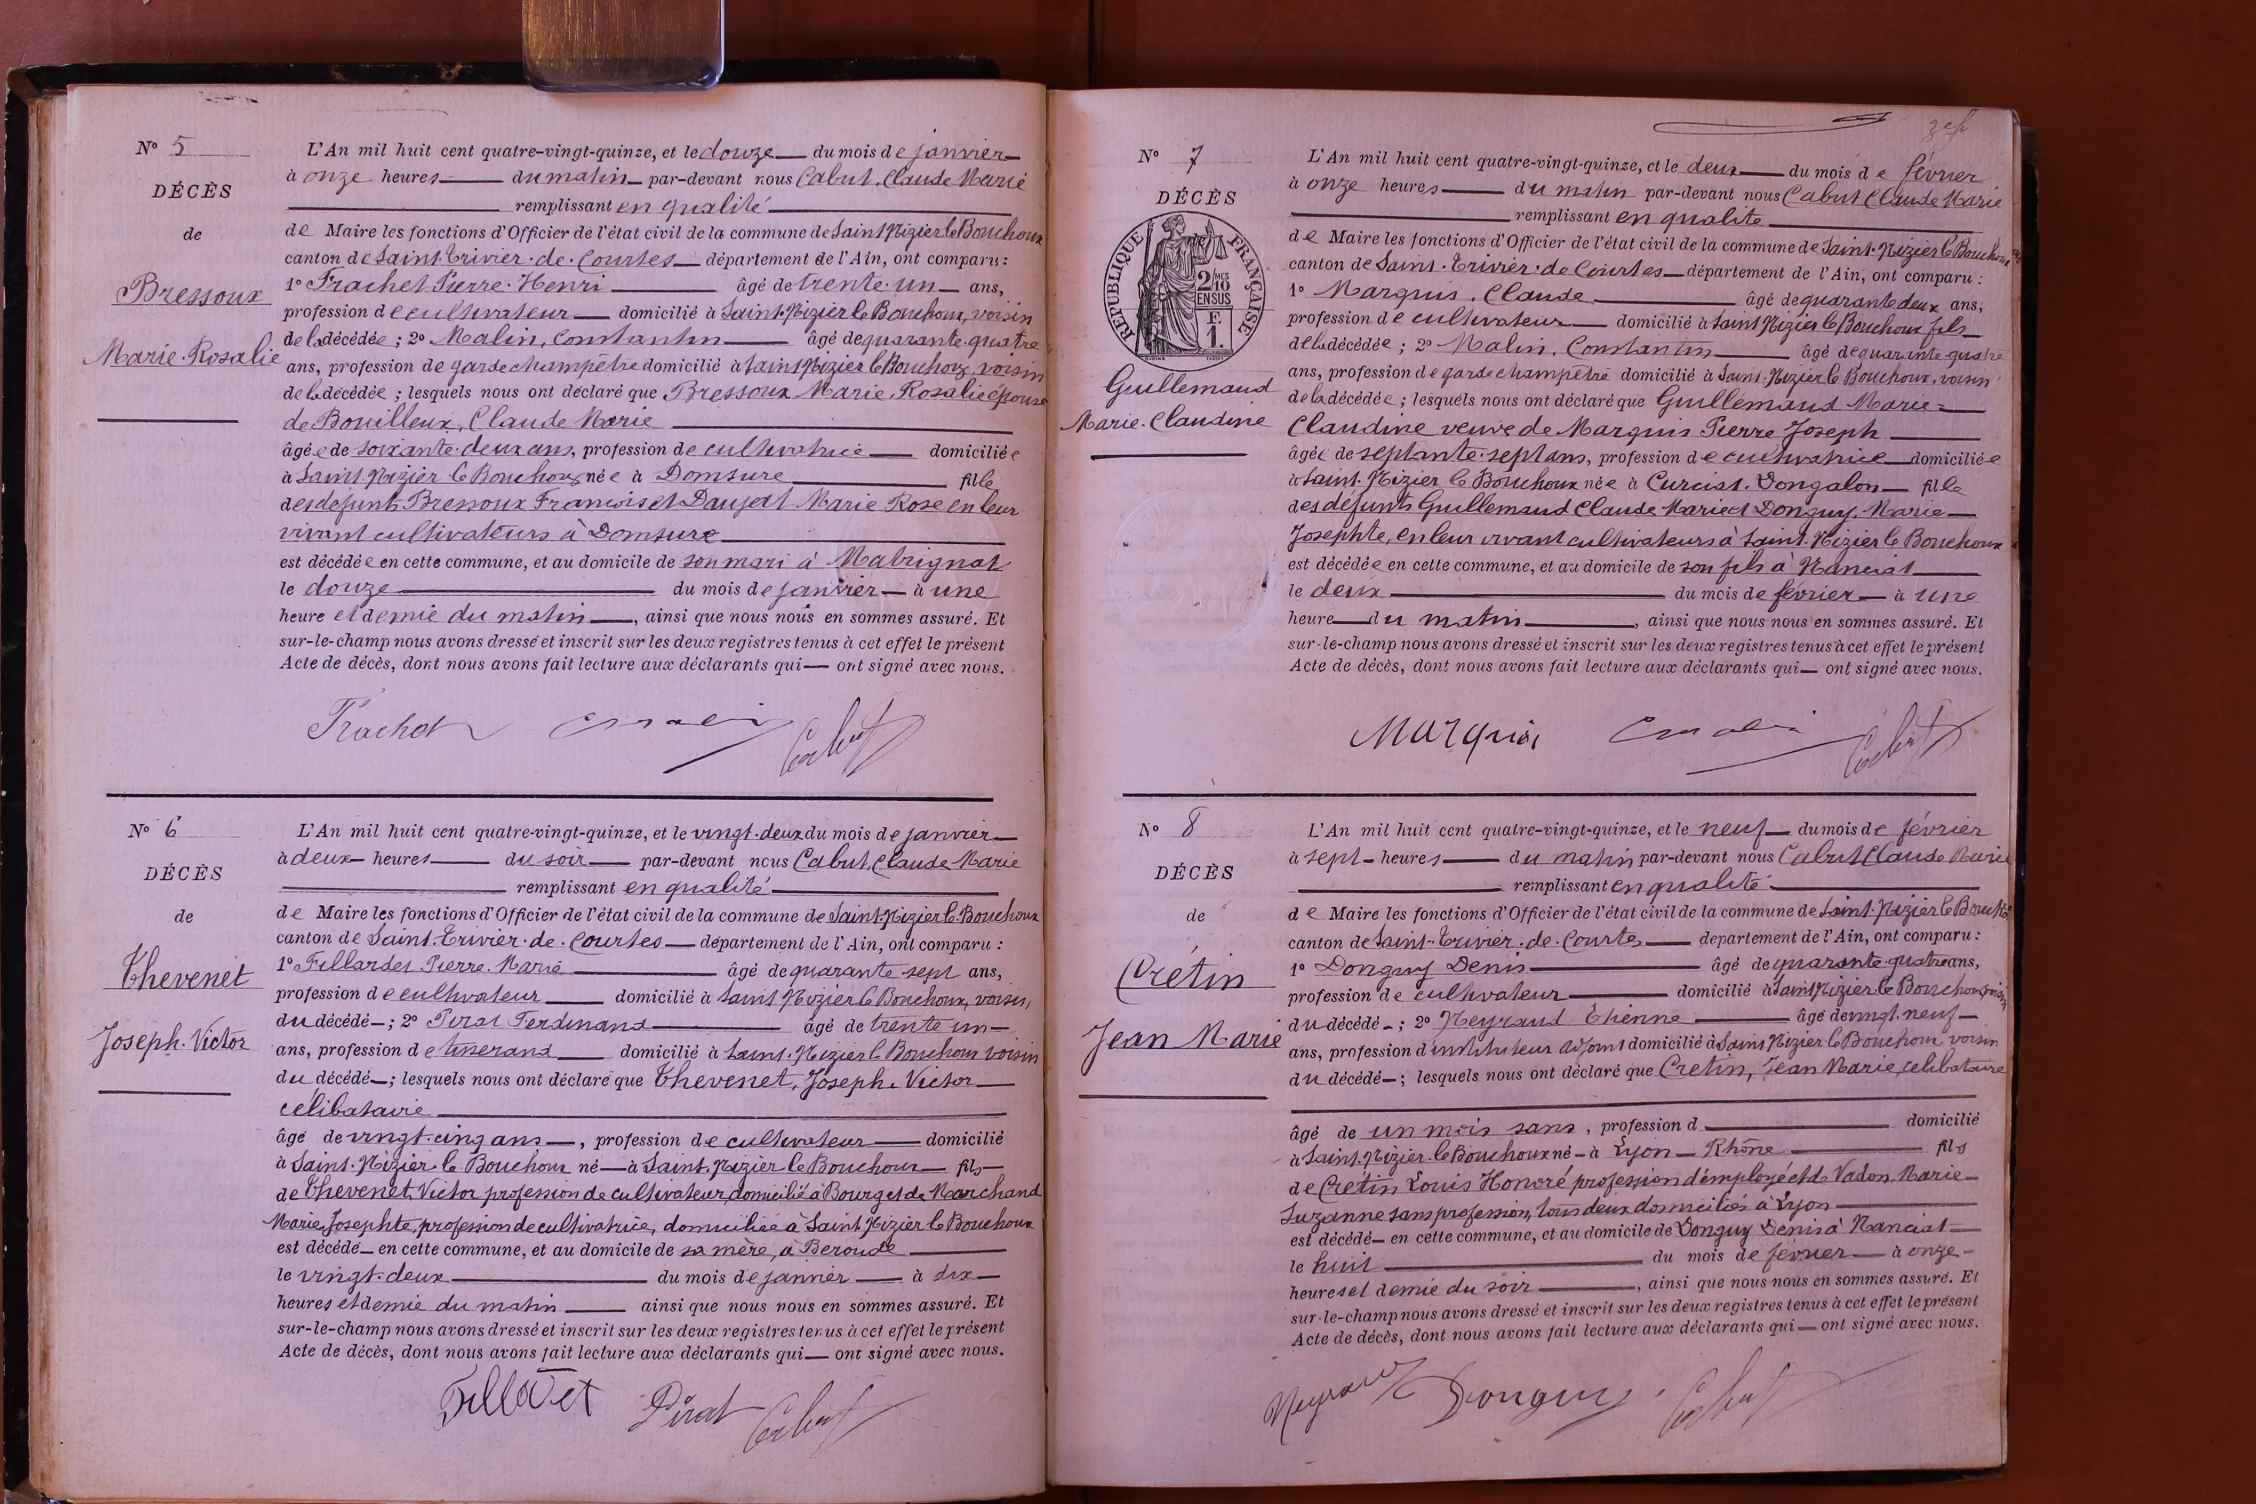 N° 5
DÉCÈS
de
Bressoux
Marie-Rosalie
L'An mil huit cent quatre-vingt-quinze, et le douze du mois de janvier
à onze heures du matin par-devant nous Cabut, Claude Marie
remplissant en qualité
de Maire les fonctions d'Officier de l'état civil de la commune de Saint Nizier le Bouchoux
canton de Saint-Trivier-de-Courtes département de l'Ain, ont comparu :
1° Frachet Pierre-Henri âgé de trente-un ans,
profession de cultivateur domicilié à Saint-Nizier le Bouchoux, voisin
de la décédée ; 2° Malin, Constantin âgé de quarante-quatre
ans, profession de garde champêtre domicilié à Saint Nizier le Bouchoux, voisin
de la décédée ; lesquels nous ont déclaré que Bressoux Marie, Rosalie épouse
de Bouilleux, Claude Marie
âgée de soixante-deux ans, profession de cultivatrice domiciliée
à Saint Nizier le Bouchoux née à Domsure fille
des défunts Bressoux François et Marie Rose en leur
vivant cultivateurs à Domsure
est décédée en cette commune, et au domicile de son mari à Mabrignat
le douze du mois de janvier à une
heure et demie du matin, ainsi que nous nous en sommes assuré. Et
sur-le-champ nous avons dressé et inscrit sur les deux registres tenus à cet effet le présent
Acte de décès, dont nous avons fait lecture aux déclarants qui ont signé avec nous.
Frachet C Malin Cabut
N° 6
DÉCÈS
de
Thevenet
Joseph-Victor
L'An mil huit cent quatre-vingt-quinze, et le vingt-deux du mois de janvier
à deux heures du soir par-devant nous Cabut, Claude Marie
remplissant en qualité
de Maire les fonctions d'Officier de l'état civil de la commune de Saint-Nizier le Bouchoux
canton de Saint-Trivier-de-Courtes département de l'Ain, ont comparu :
1° Fillardet Pierre-Marie âgé de quarante-sept ans,
profession de cultivateur domicilié à Saint Nizier le Bouchoux, voisin,
du décédé ; 2° Pirat Ferdinand âgé de trente un
ans, profession de tisserand domicilié à Saint-Nizier le Bouchoux voisin
du décédé ; lesquels nous ont déclaré que Thevenet, Joseph, Victor
celibataire
âgé de vingt-cinq ans, profession de cultivateur domicilié
à Saint-Nizier le Bouchoux né à Saint-Nizier le Bouchoux fils
de Thevenet, Victor profession de cultivateur, domicilié à Bourg et de Marchand
Marie Josephte, profession de cultivatrice, domiciliée à Saint Nizier le Bouchoux
est décédé en cette commune, et au domicile de sa mère, à Beroude
le vingt-deux du mois de janvier à dix
heures et demie du matin ainsi que nous nous en sommes assuré. Et
sur-le-champ nous avons dressé et inscrit sur les deux registres tenus à cet effet le présent
Acte de décès, dont nous avons fait lecture aux déclarants qui ont signé avec nous.
Pirat Cabut
N° 7
DÉCÈS
RÉPUBLIQUE FRANÇAISE
2/10 MES
EN SUS
F.
1.
Guillemaud
Marie-Claudine
L'An mil huit cent quatre-vingt-quinze, et le deux du mois de février
à onze heures du matin par-devant nous Cabut Claude Marie
remplissant en qualite
de Maire les fonctions d'Officier de l'état civil de la commune de Saint-Nizier le Bouchoux
canton de Saint-Trivier-de Courtes département de l'Ain, ont comparu :
1° Marquis, Claude âgé de quarante deux ans,
profession de cultivateur domicilié à Saint Nizier le Bouchoux fils
de la décédée ; 2° Malin, Constantin âgé de quarante-quatre
ans, profession de garde champêtre domicilié à Saint-Nizier le Bouchoux, voisin
de la décédée ; lesquels nous ont déclaré que Guillemaud Marie-
Claudine veuve de Marquis Pierre Joseph
âgée de septante-sept ans, profession de cultivatrice domiciliée
à Saint-Nizier le Bouchoux née à Curciat-Dongalon fille
des défunts Guillemaud Claude Marie et Donguy, Marie
Josephte, en leur vivant cultivateurs à Saint-Nizier le Bouchoux
est décédée en cette commune, et au domicile de son fils à Nanciat
le deux du mois de février à une
heure du matin, ainsi que nous nous en sommes assuré. Et
sur-le-champ nous avons dressé et inscrit sur les deux registres tenus à cet effet le présent
Acte de décès, dont nous avons fait lecture aux déclarants qui ont signé avec nous.
Marquis C Malin Cabut
N° 8
DÉCÈS
de
Crétin
Jean Marie
L'An mil huit cent quatre-vingt-quinze, et le neuf du mois de février
à sept heures du matin par-devant nous Cabut Claude Marie
remplissant en qualité
de Maire les fonctions d'Officier de l'état civil de la commune de Saint-Nizier le Bouchoux
canton de Saint-Trivier-de-Courtes département de l'Ain, ont comparu :
1° Donguy Denis âgé de quarante-quatre ans,
profession de cultivateur domicilié à Saint Nizier le Bouchoux voisin
du décédé ; 2° Neyraud Etienne âgé de vingt-neuf
ans, profession d'instituteur adjoint domicilié à Saint Nizier le Bouchoux voisin
du décédé ; lesquels nous ont déclaré que Cretin, Jean Marie, celibataire
âgé de un mois sans, profession d domicilié
à Saint-Nizier-le Bouchoux né à Lyon Rhône fils
de Crétin Louis Honoré profession d'employé et de Vadon Marie-
Suzanne sans profession, tous deux domiciliés à Lyon
est décédé en cette commune, et au domicile de Donguy Denis à Nanciat
le huit du mois de février à onze
heures et demie du soir, ainsi que nous nous en sommes assuré. Et
sur-le-champ nous avons dressé et inscrit sur les deux registres tenus à cet effet le présent
Acte de décès, dont nous avons fait lecture aux déclarants qui ont signé avec nous.
Neyraud Donguy Cabut